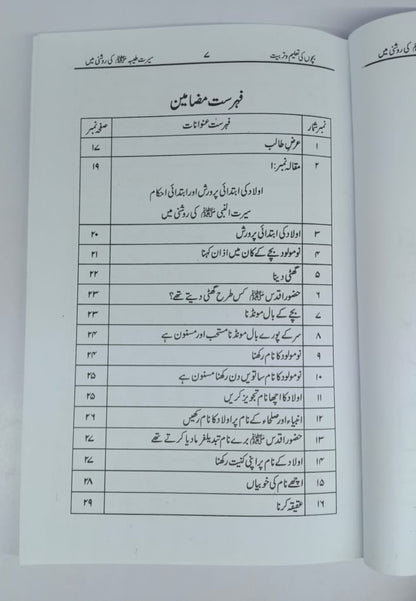 بچوں کی تعلیم و تربیت ۷ سیرت طیبہ ﷺ کی روشنی میں
فہرست مضامین
نمبر شمار فہرست عنوانات صفحہ نمبر
۱ عرض طالب ۱۷
۲ مقالہ نمبر: ۱ ۱۹
اولاد کی ابتدائی پرورش اور ابتدائی احکام
سیرت النبی ﷺ کی روشنی میں
۳ اولاد کی ابتدائی پرورش ۲۰
۴ نومولود بچے کے کان میں اذان کہنا ۲۱
۵ گھٹی دینا ۲۲
۶ حضور اقدس ﷺ کس طرح گھٹی دیتے تھے؟ ۲۳
۷ بچے کے بال مونڈنا ۲۳
۸ سر کے پورے بال مونڈنا مستحب اور مسنون ہے ۲۴
۹ نومولود کا نام رکھنا ۲۴
۱۰ نومولود کا نام ساتویں دن رکھنا مسنون ہے ۲۵
۱۱ اولاد کا اچھا نام تجویز کریں ۲۵
۱۲ انبیاء اور صلحاء کے نام پر اولاد کا نام رکھیں ۲۶
۱۳ حضور اقدس ﷺ برے نام تبدیل فرمادیا کرتے تھے ۲۷
۱۴ اولاد کے نام پر اپنی کنیت رکھنا ۲۷
۱۵ اچھے نام کی خوبیاں ۲۸
۱۶ عقیقہ کرنا ۲۹
کی روشنی میں